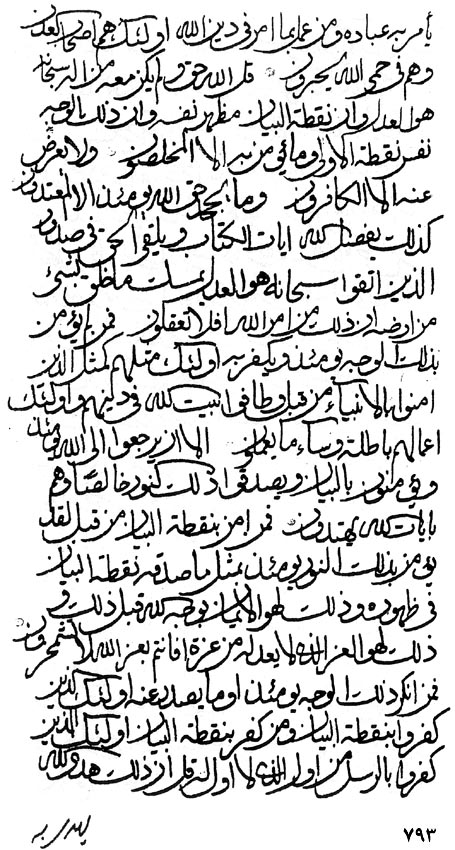 يأمر به عباده ومن عمل بما امر في دين الله اولئك هم اصحاب العدل
وهم في حمى الله يحبرون قل الله حق ولم يكن معه من اله سبحانه
هو العدل وان نقطة البيان مظهر نفسه وان ذلك الوجه
نفس نقطة الاولى وما يؤمن به الا المخلصون ولا يعرض
عنه الا الكافرون وما يجحد حق الله يومئذ الا المعتدون
كذلك يفصل الله ايات الكتاب ويلقي الحق في صدور
الذين اتقوا سبحانه هو العدل يمسك ما خلق بشيء
من ارضه ان ذلك من امر الله افلا تعقلون فمن لم يؤمن
بذلك الوجه يومئذ ويكفر به اولئك مثلهم كمثل الذين
امنوا بالانبياء من قبل وطافوا البيت لله في دينهم واولئك
اعمالهم باطلة وساء ما يعملون الا ان يرجعوا الى الله يومئذ
ويؤمنون بالبيان ويصدقوا ذلك النور خالصا وهم
بايات الله يهتدون فمن امن بنقطة البيان من قبل لقد
يؤمن بذلك النور يومئذ بمثل ما صدق نقطة البيان
في ظهوره وذلك لهو الايمان بوجه الله قبل ذلك و
ذلك لهو العز الذي لا يعدله من عزة افانتم بعز الله لا تفتخرون
فمن انكر ذلك الوجه يومئذ او ما يصدر عنه اولئك الذين
كفروا بنقطة البيان ومن كفر بنقطة البيان اولئك الذين
كفروا بالرسل من اول الذي لا اول له قل ان ذلك هدى الله
يهدي به
٧٩٣